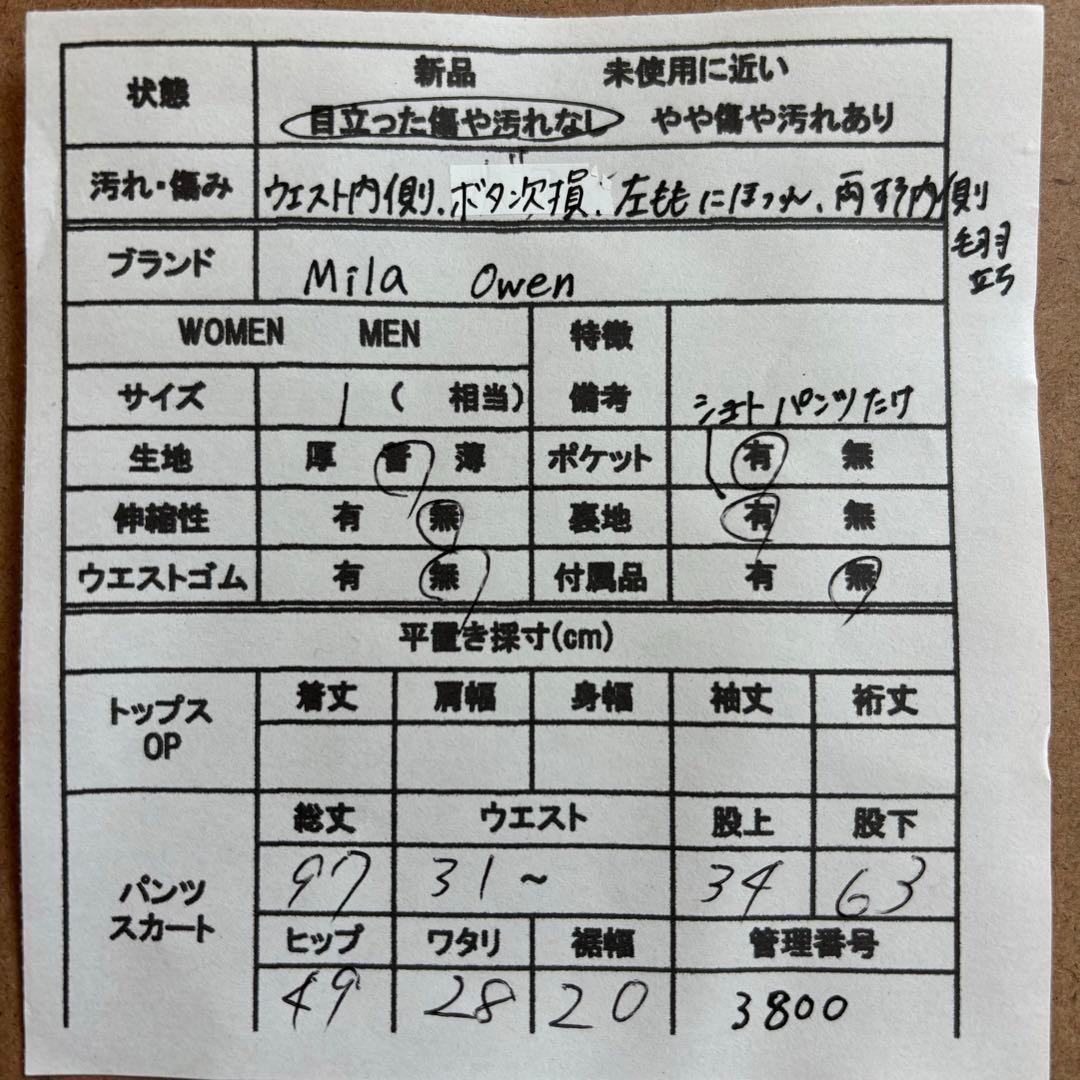 状態 新品 未使用に近い
目立った傷や汚れなし やや傷や汚れあり
汚れ・傷み ウエスト内側、ボタ欠損、左ももにほつれ、両すそ内側
毛羽
立ち
ブランド Mila Owen
WOMEN MEN 特徴
サイズ 1 ( 相当) 備考 ショートパンツだけ
生地 厚 普 薄 ポケット 有 無
伸縮性 有 無 裏地 有 無
ウエストゴム 有 無 付属品 有 無
平置き採寸(cm)
トップス
OP 着丈 肩幅 身幅 袖丈 裄丈
総丈 ウエスト 股上 股下
パンツ
スカート 97 31~ 34 63
ヒップ ワタリ 裾幅 管理番号
49 28 20 3800